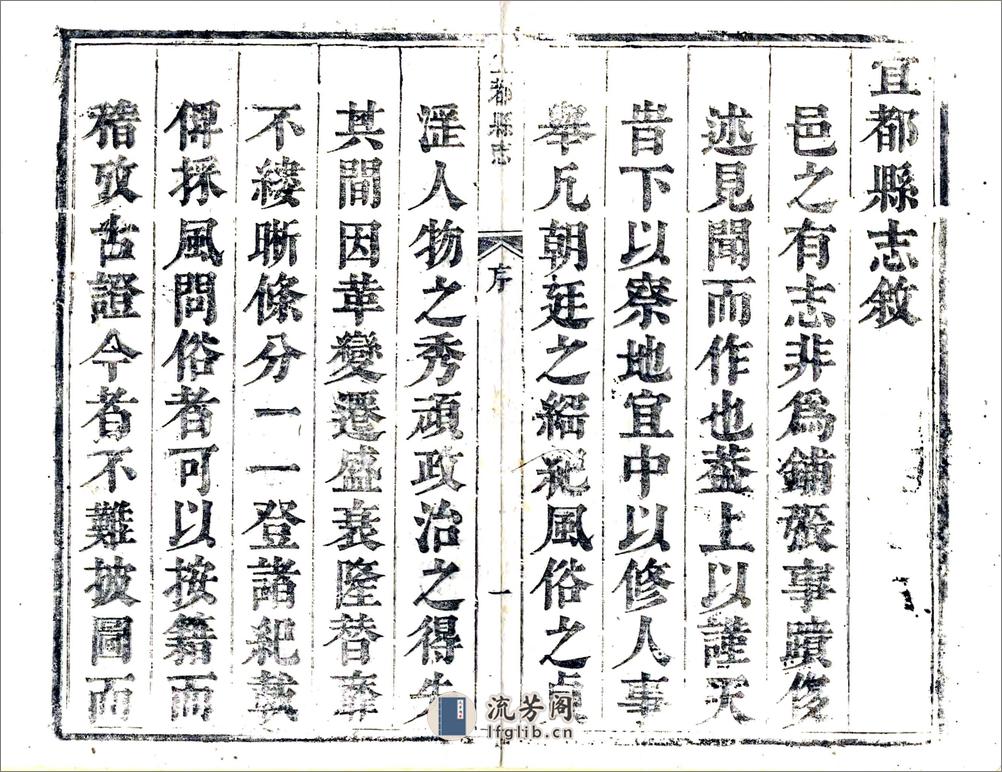 宜都縣志敘
邑之有志非爲鋪張事蹟侈
述見聞而作也葢上以謹天
旹下以察地宜中以修人事
舉凡朝廷之綱紀風俗之貞
宜都縣志
序
一
淫人物之秀頑政治之得失
其間因革變遷盛衰隆替
不綾晰條分一一登諸紀載
俾採風問俗者可以按籍而
稽攷古證今者不難披圖而
流芳阁
lfglib.cn